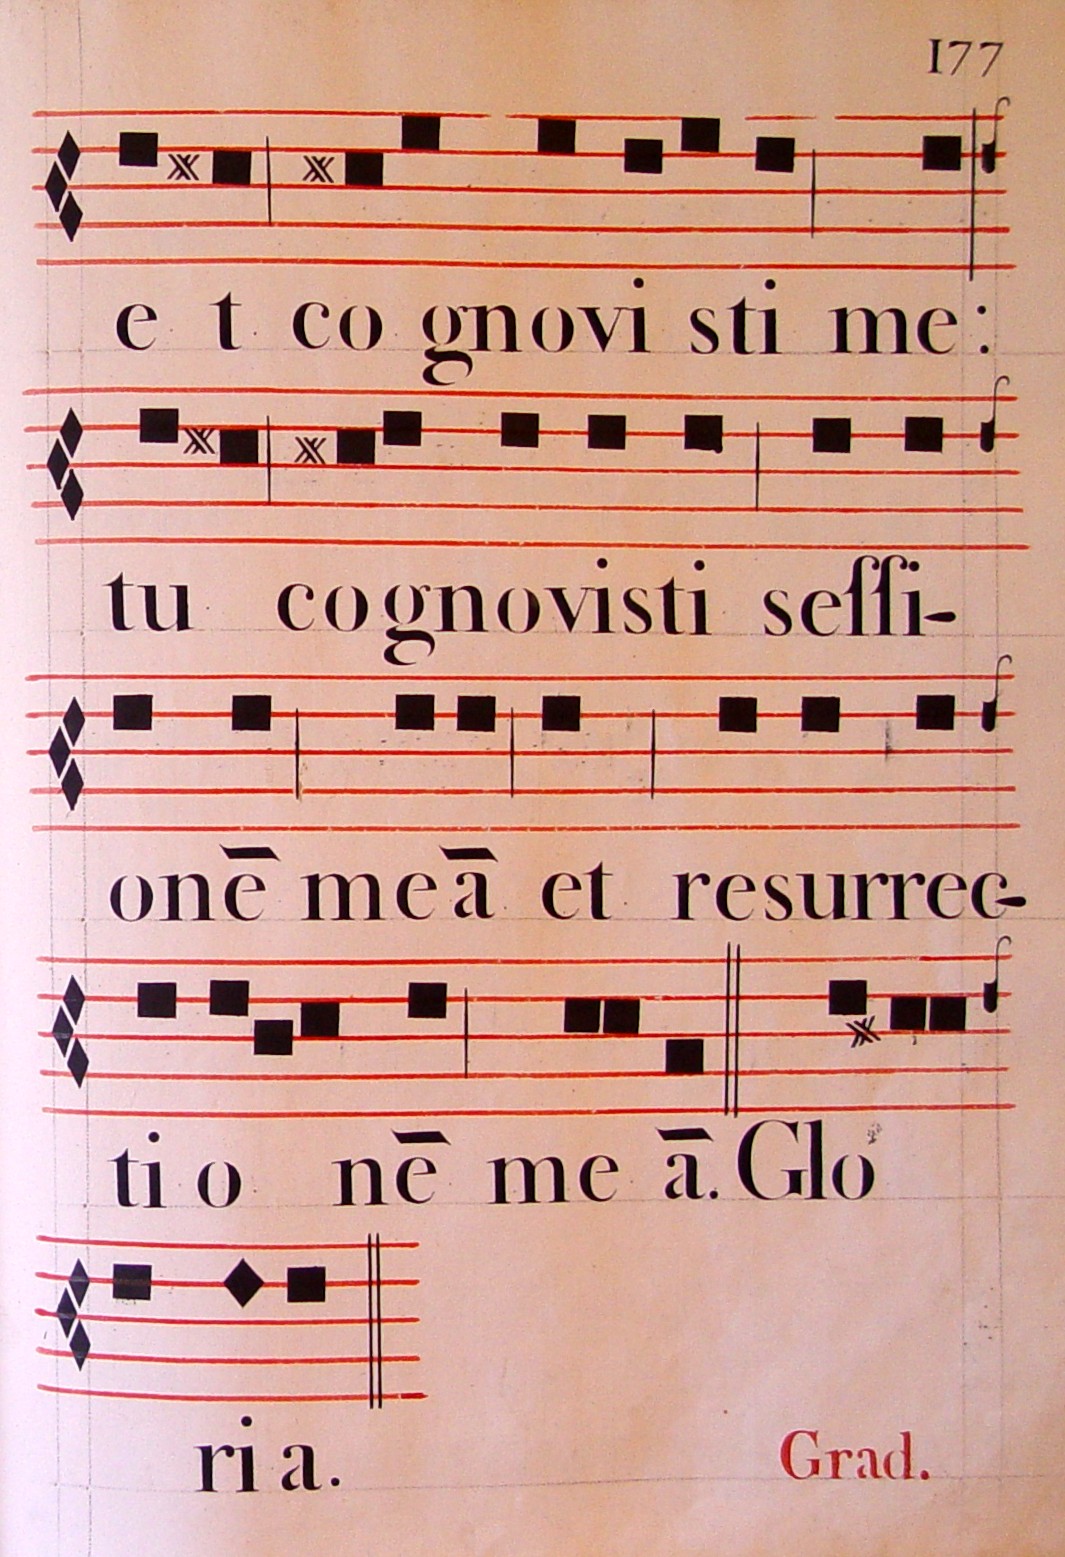 177
et cognovisti me:
tu cognovisti seſſi-
onē meā et resurrec-
tionē meā. Glo
ria.
Grad.